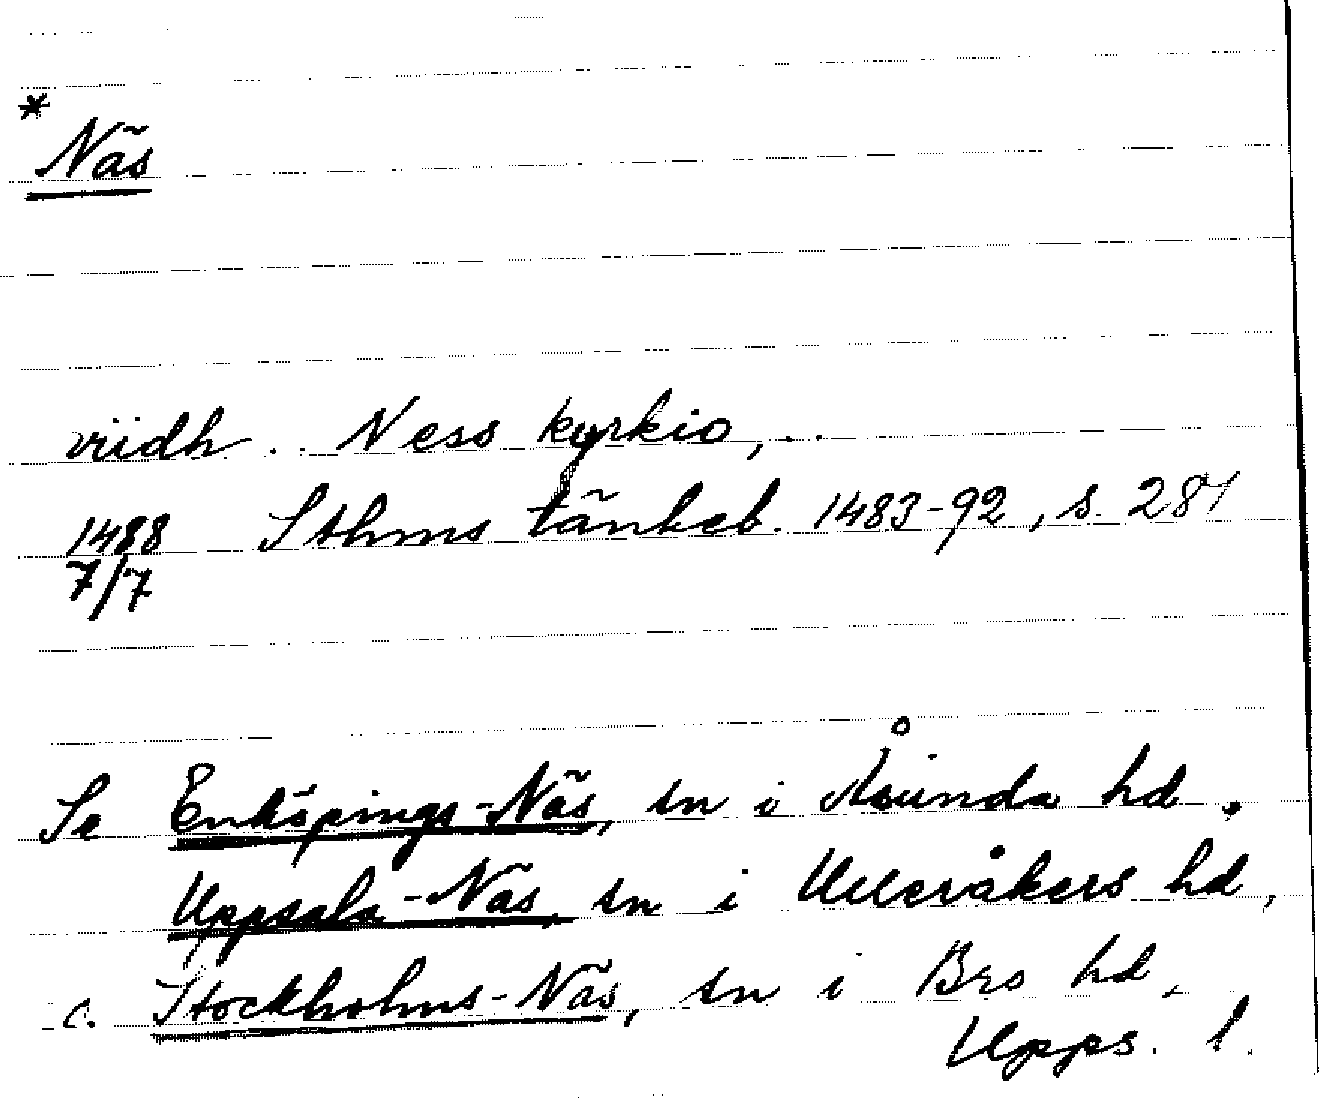 *
Näs
viidh .. Ness kyrkio, ..
1488 Sthms tänkeb. 1483-92, s. 281
7/7
Se Enköpings-Näs, sn i Åsunda hd,
Uppsala-Näs, sn i Ulleråkers hd,
o. Stockholms-Näs, sn i Bro hd,
Upps. l.